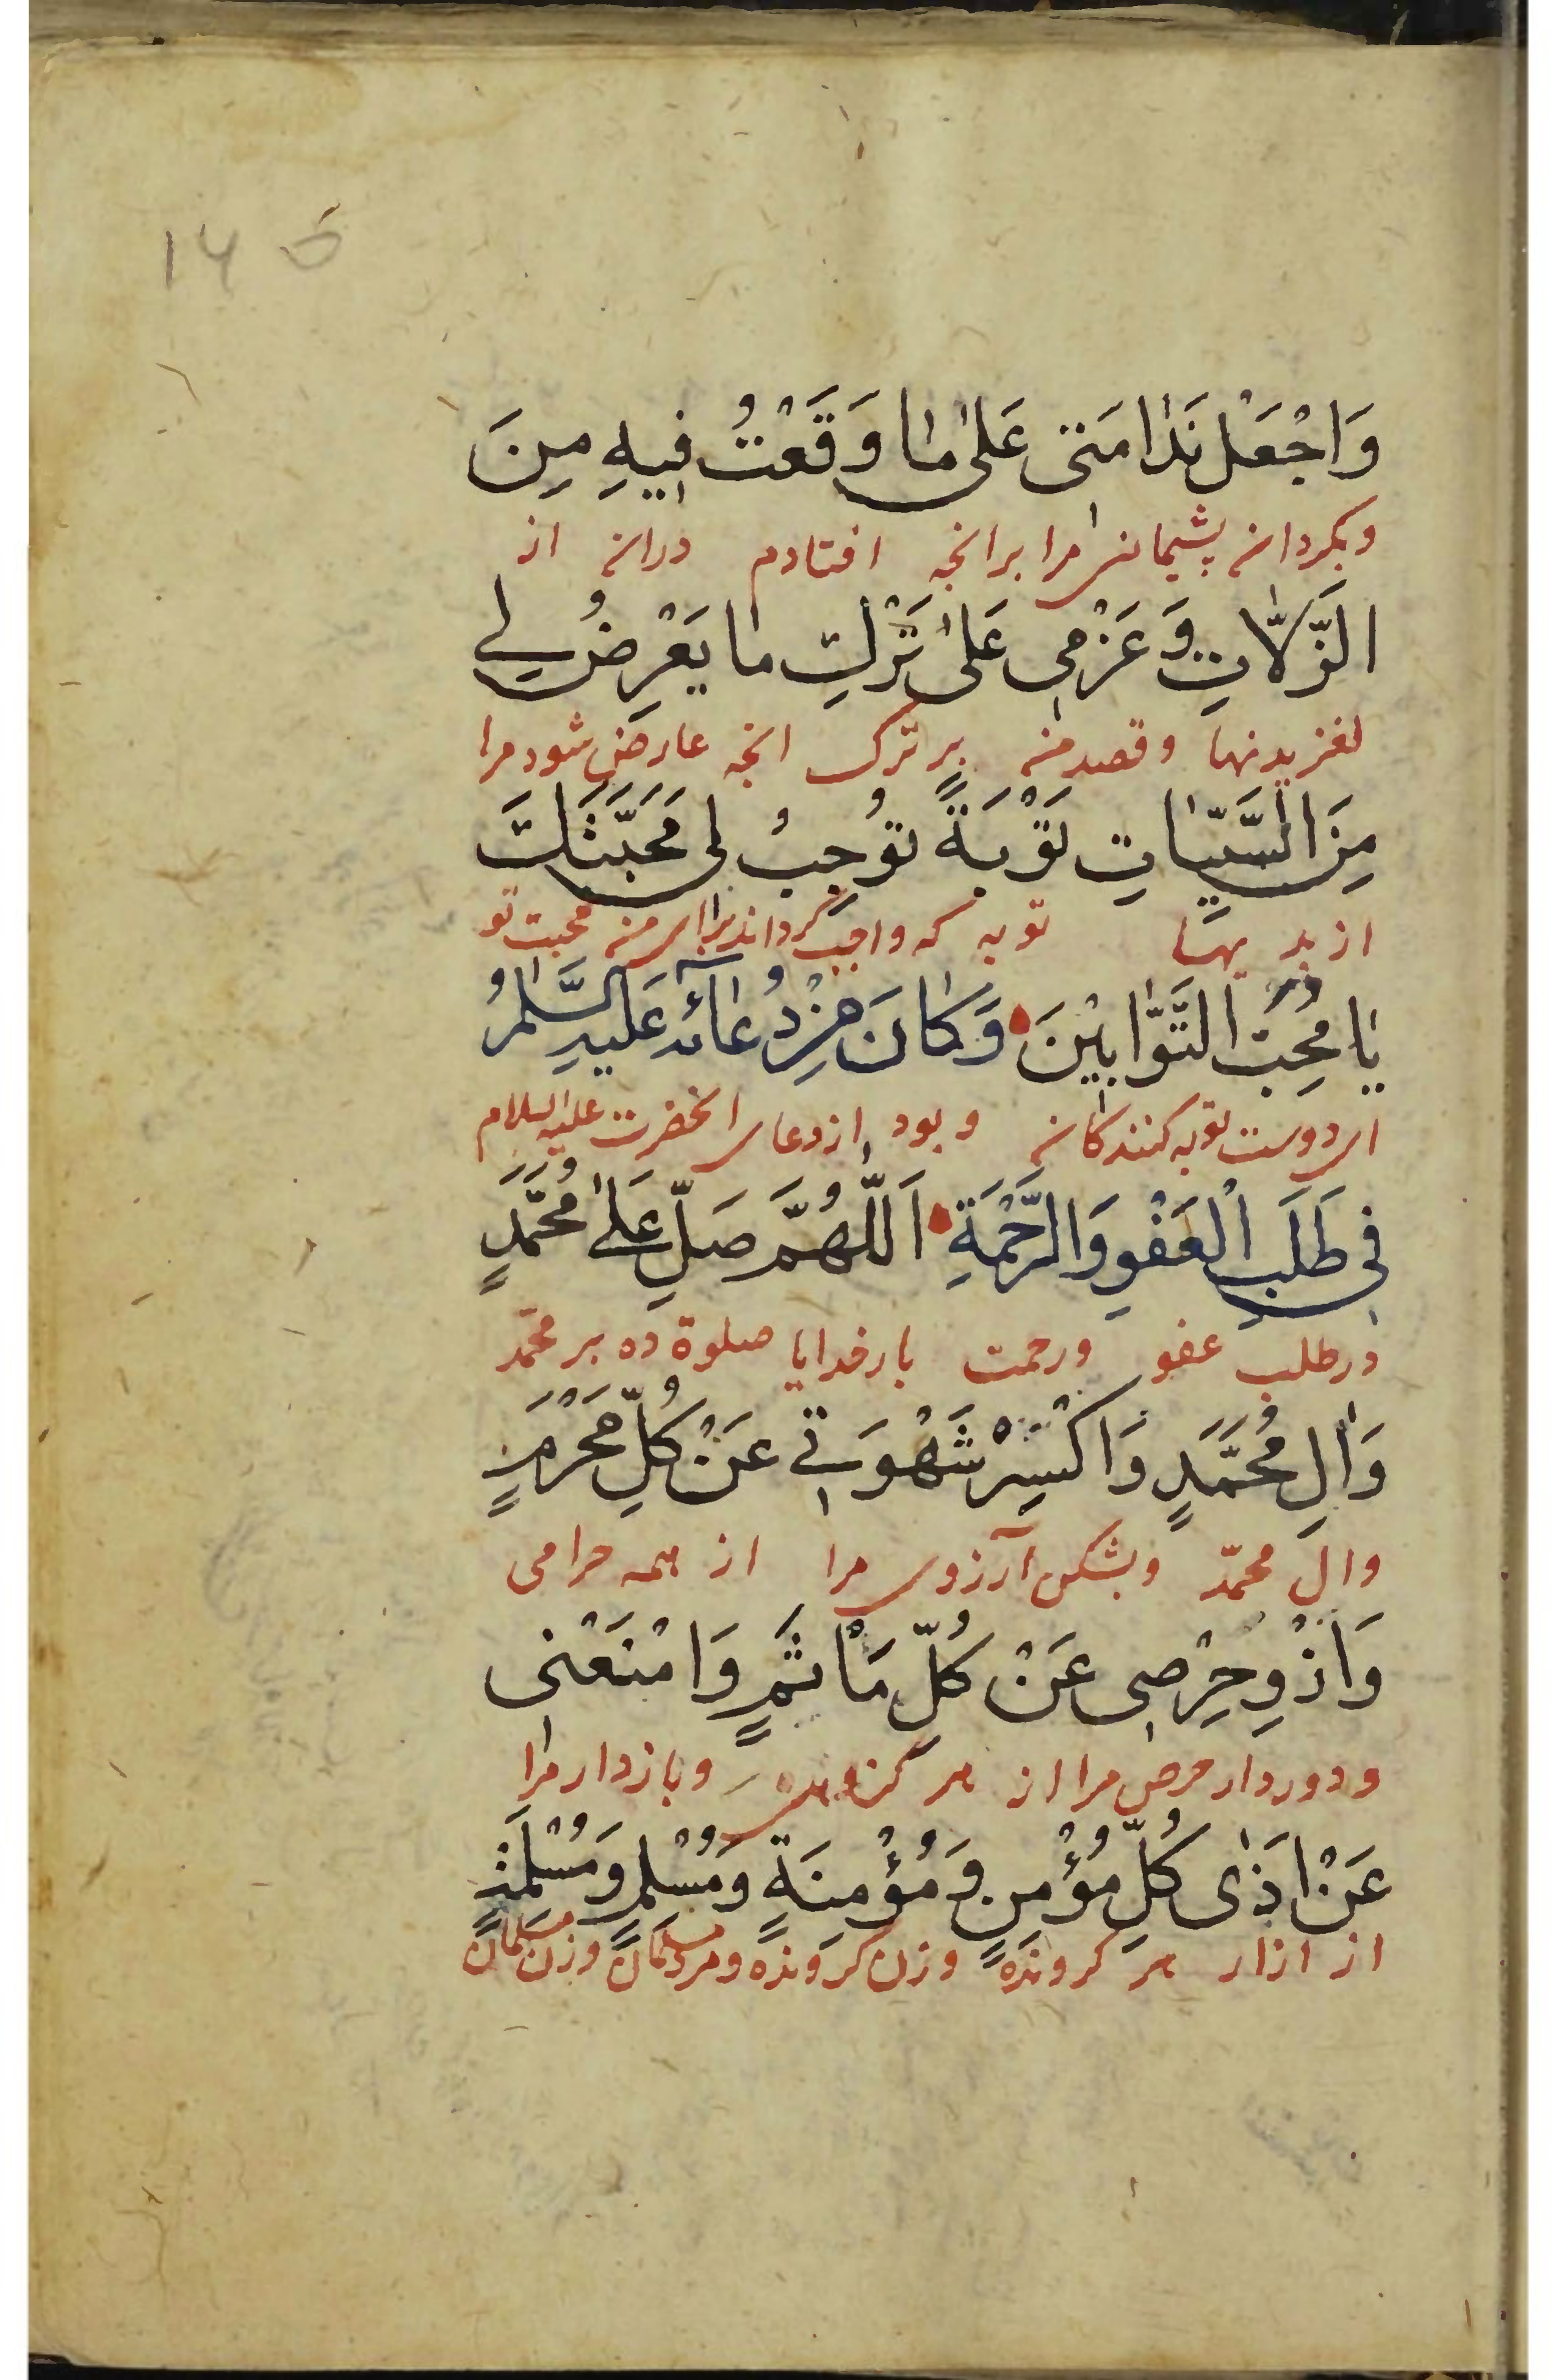 وَاجْعَلْ نَدٰامَتى عَلىٰ مٰا وَقَعْتُ فيهِ مِنَ
وبکردان پشیمانی مرا برانچه افتادم دران از
الزَّلّاتِ وَعَزْمى عَلىٰ تَرْكِ مٰا يَعْرِضُ لى
لغزیدنها وقصد من بر ترک انچه عارض شود مرا
مِنَ السَّيِّئٰاتِ تَوْبَةً تُوجِبُ لى مَحَبَّتَكَ
از بدیها توبه که واجب کرداند برای من محبت تو
يٰا مُحِبَّ التَّوّٰابينَ وَكٰانَ مِنْ دُعٰائِهِ عَلَيهِ السَّلٰمُ
ای دوست توبه کنندکان وبود ازدعای انحضرت علیه السلام
فى طَلَبِ الْعَفْوِ وَالرَّحْمَةِ اَللّٰهُمَّ صَلِّ عَلىٰ مُحَمَّدٍ
درطلب عفو ورحمت بارخدایا صلوة ده بر محمّد
وَاٰلِ مُحَمَّدٍ وَاكْسِرْ شَهْوَتى عَنْ كُلِّ مَحْرَمٍ
وال محمّد وبشکن آرزوی مرا از همه حرامی
وَازْوِ حِرْصى عَنْ كُلِّ مَاْثَمٍ وَامْنَعْنى
ودوردار حرص مرا از هر وبازدار مرا
عَنْ اَذٰى كُلِّ مُؤْمِنٍ وَمُؤْمِنَةٍ وَمُسْلِمٍ وَمُسْلِمَةٍ
از ازار هر کرونده وزن کرونده ومرد مسلمان وزن مسلمان